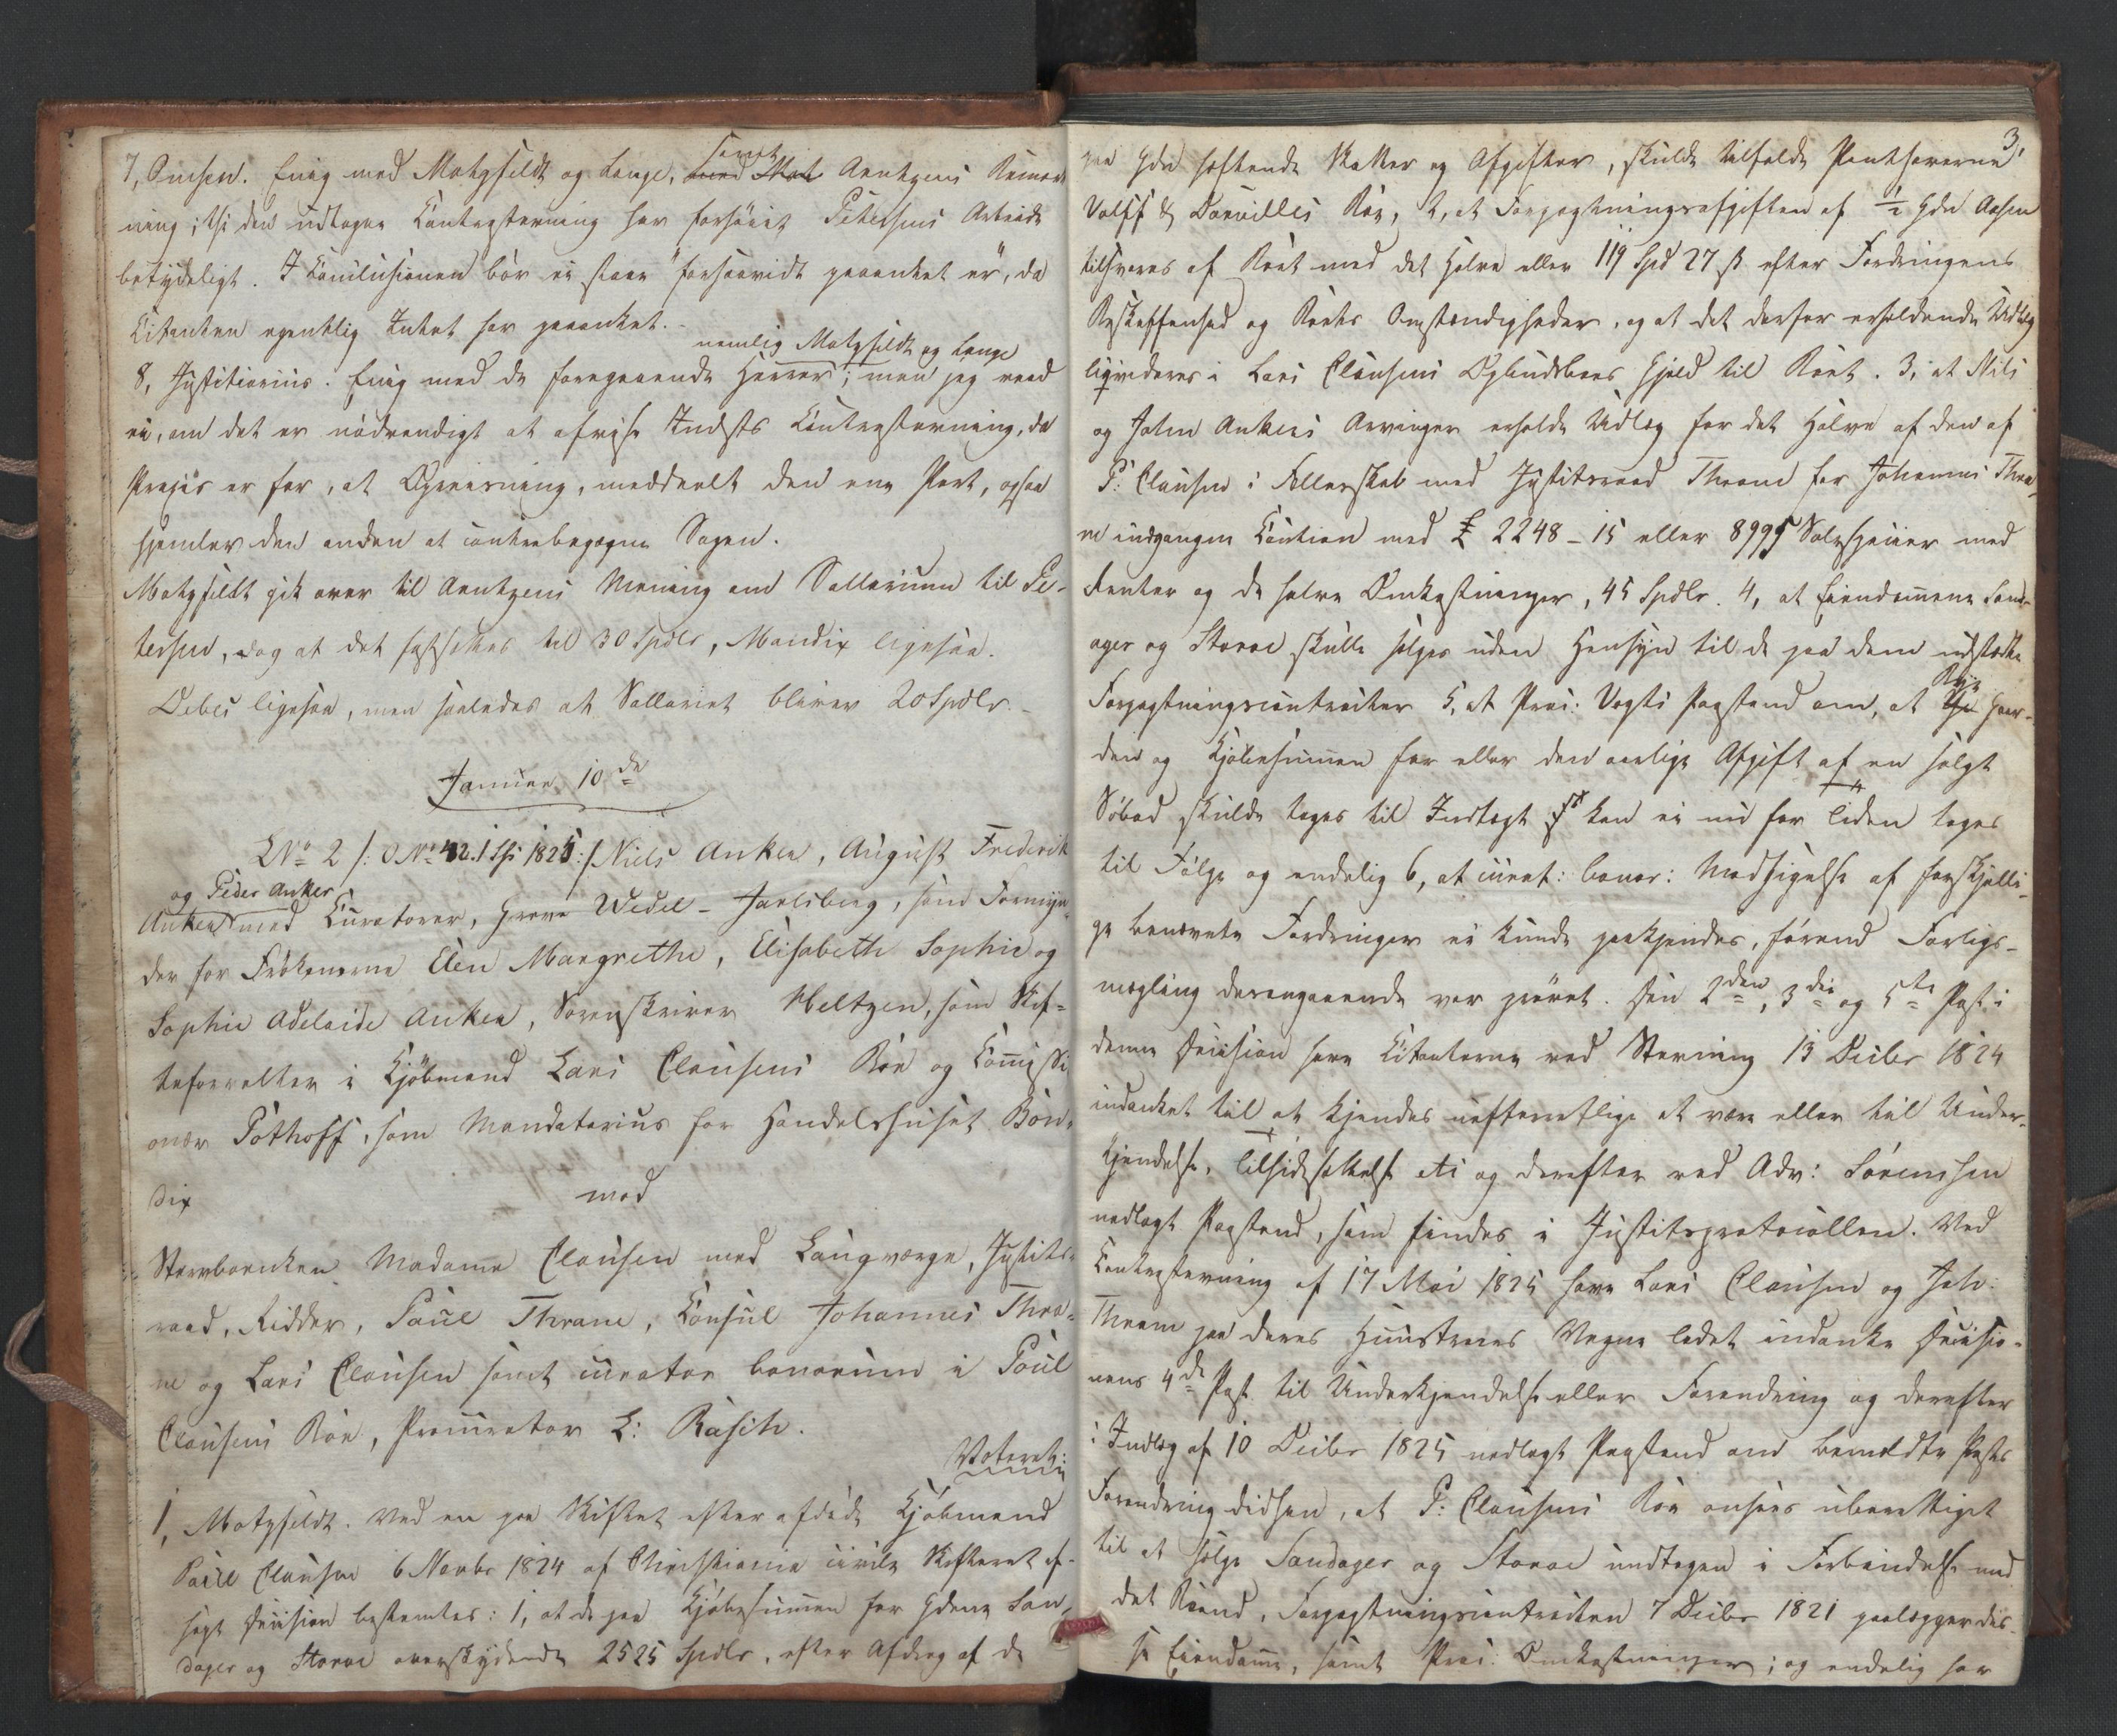 7, Omsen. Enig med Motzfeldt og Lange, samt Arntzens Bemærk
ning; thi den udtagne Contrastevning har forhöiet Petersens Arbeide
betydeligt. I Conclusionen bör ei staae "forsaavidt paaanket er", da
Citanten egentlig Intet har paaanket. -
nemlig Motzfeldt og Lange
8, Justitiarius. Enig med de foregaaende Herrer; men jeg veed
ei, om det er nödvendigt at afvise Indsts Contrastevning, da
Praxis er for, at Opreisning, meddeelt den ene Part, ogsaa
hjemler den anden at contrabegagne Sagen.
Motzfeldt gik over til Arntzens Mening om Sallarium til Pe-
tersen, dog at det fastsættes til 30 Spdlr, Mandix ligesaa.
Debes ligesaa, men saaledes at Sallariet bliver 20 Spdlr. -
Januar 10de
LNo 2 /: O No 42. 1 Ss 1825 :/ Niels Anker, August Frederik
og Peder Anker
Anker med Curatorer, Greve Wedel-Jarlsberg, som Formyn-
der for Frökenerne Elen Margrethe, Elisabeth Sophie og
Sophie Adelaide Anker, Sorenskriver Weltzen, som Skif-
teforvalter i Kjöbmand Lars Clausens Boe og Commissi
onær Pothoff, som Mandatarius for Handelshuset Bon-
dix
mod
Stervboenken Madame Clausen med Laugværge, Justits-
raad, Ridder, Paul Thrane, Consul Johannes Thra-
ne og Lars Clausen samt curator bonorum i Poul
Clausens Boe, Procurator L: Rasch.
Voteret:
1, Motzfeldt. Ved en paa Skiftet efter afdöde Kjöbmand
Poul Clausen 6 Novbr 1824 af Christiania civile Skifteret af-
sagt Decision bestemtes: 1, at de paa Kjöbesummen for Gdene San-
dager og Storøe overskydende 2525 Spdlr, efter Afdrag af de
3,
paa Gdn hæftende Skatter og Afgifter, skulde tilfalde Panthaverne
Wolff & Dorvilles Boe, 2, at Forpagtningsafgiften af ½ Gdn Aasen
tilsvares af Boet med det Halve eller 119 Spd 27 ß efter Fordringens
Beskaffenhed og Boets Omstændigheder, og at det derfor erholdende Udlæg
liqvideres i Lars Clausens Opbudsboes Gjæld til Boet. 3, at Nils
og John Ankers Arvinger erholde Udlæg for det Halve af den af
P: Clausen i Fællesskab med Justitsraad Thrane for Johannes Thra-
ne indgangne Caution med £ 2248-15 eller 8995 Sølvspecier med
Renter og de halve Omkostninger, 45 Spdlr. 4, at Eiendommene Sand-
ager og Storøe skulle sælges uden Hensyn til de paa dem udstædte
Forpagtningscontracter 5, at Proc: Vogts Paastand om, at Rye Gaar-
den og Kjöbesummen for eller den aarlige Afgift af en solgt
Söbod skulde tages til Indtægt kan ei nu for Tiden tages
til Fölge og endelig 6, at curat: bonor: Modsigelse af forskjelli-
ge benævnte Fordringer ei kunde paakjendes, förend Forligs-
mægling derangaaende var prövet. Den 2den, 3die og 5te Post i
denne Decision have Citanterne ved Stevning 13 Decbr 1824
indanket til at kjendes uefterretlige at være eller til Under-
kjendelse, Tilsidesættelse etc og derefter ved Adv: Sörenssen
nedlagt Paastand, som findes i Justitsprotocollen. Ved
Contrastevning af 17 Mai 1825 have Lars Clausen og Joh:
Thrane paa deres Huustruers Vegne ladet indanke Decisio-
nens 4de Post til Underkjendelse eller Forandring og derefter
i Indlæg af 10 Decbr 1825 nedlagt Paastand om bemeldte Posts
Forandring didhen, at P: Clausens Boe ansees uberettiget
til at sælge Sandager og Storøe undtagen i Forbindelse med
det Baand, Forpagtningscontracten 7 Decbr 1821 paalægger dis-
se Eiendomme, samt Proc: Omkostninger; og endelig har